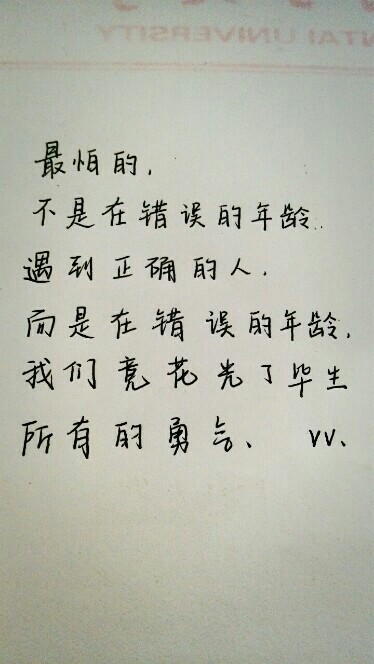 NTAI UNIVERSITY
最怕的,
不是在错误的年龄
遇到正确的人.
而是在错误的年龄,
我们竟花光了毕生
所有的勇气、 VV、